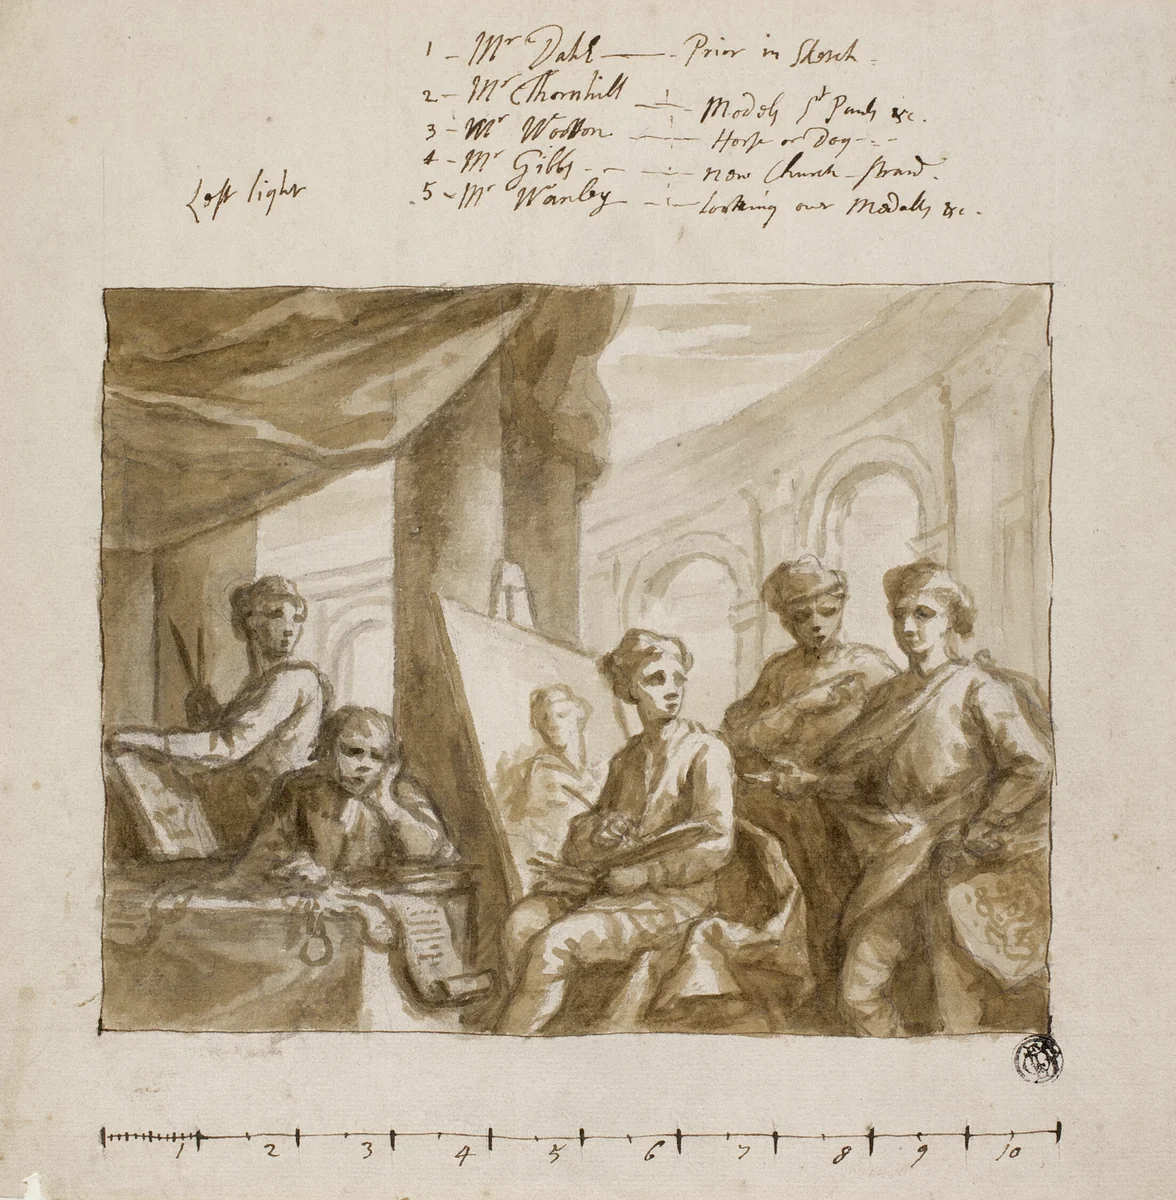 1 - Mr Dahl —— - Prior in Sketch -
2 - Mr Thornhill —¦— Models St Pauls &c.
3 - Mr Wotton - —¦— Horse or Dog - - -
4 - Mr Gibbs - - —¦— new Church - Strand.
5 - Mr Wanley - —¦— looking over Medalls &c.
Left light
1 2 3 4 5 6 7 8 9 10